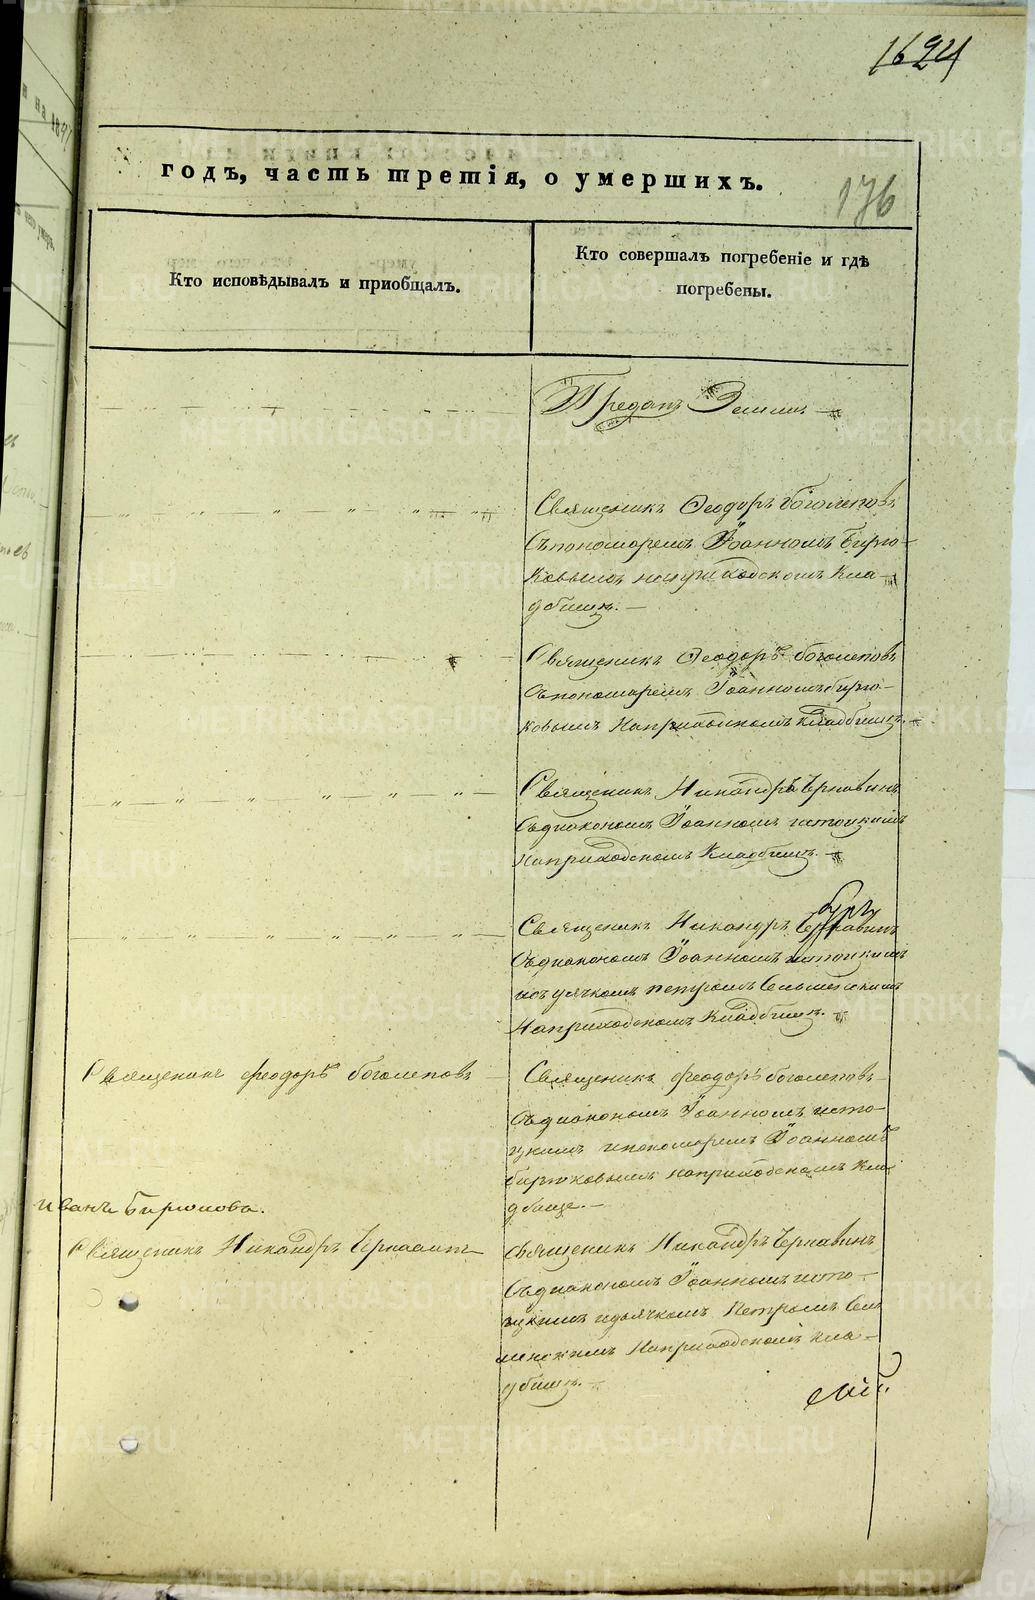 1624
годъ, часть третія, о умершихъ.
176
Кто исповѣдывалъ и приобщалъ.
Кто совершалъ погребеніе и гдѣ
погребены.
Преданъ Земли
Священикъ Ѳеодоръ боголеповъ
Съпономаремъ Іоанномъ Бирю-
ковымъ наприходскомъ Кла-
дбищѣ.
Священикъ Ѳеодоръ боголеповъ
Съпономаремъ Іоанномъ бирю-
ковымъ Наприходскомъ Кладбищѣ.
Священикъ Никандръ Чернавинъ
Съдиакономъ Іоанномъ истоцкимъ
Наприходскомъ Кладбищѣ.
Священикъ Никандръ Чернавинъ
Съдиакономъ Іоанномъ истоцкимъ
Петромъ
Наприходскомъ Кладбищѣ.
Священикъ феодоръ боголеповъ
Священикъ феодоръ боголеповъ
Съдиакономъ Іоанномъ исто-
цкимъ ипономаремъ Іоанномъ
бирюковымъ наприходскомъ кла
дбище.
Иванъ Бирюкова.
Священикъ Никандръ Чернавинъ
Священикъ Никандръ Чернавинъ
Съдиакономъ Іоанномъ исто-
цкимъ идьячкомъ Петромъ
Наприходскомъ кла-
дбищѣ.